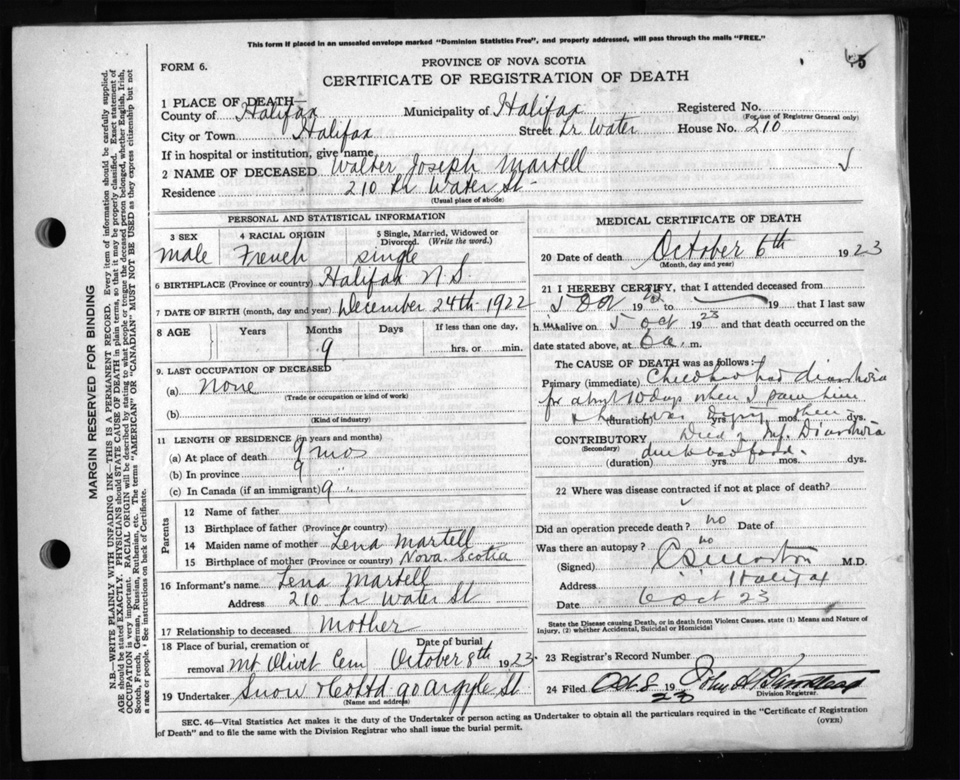 This form if placed in an unsealed envelope marked "Dominion Statistics Free", and properly addressed, will pass through the mails "FREE."
FORM 6.
PROVINCE OF NOVA SCOTIA
CERTIFICATE OF REGISTRATION OF DEATH
1 PLACE OF DEATH—
County of Halifax Municipality of Halifax Registered No.
(For use of Registrar General only)
City or Town Halifax Street Lr Water House No. 210
If in hospital or institution, give name
2 NAME OF DECEASED Walter Joseph Martell
Residence 210 Lr Water St
(Usual place of abode)
PERSONAL AND STATISTICAL INFORMATION
3 SEX 4 RACIAL ORIGIN 5 Single, Married, Widowed or Divorced. (Write the word.)
male French single
6 BIRTHPLACE (Province or country) Halifax N.S.
7 DATE OF BIRTH (month, day and year) December 24th 1922
8 AGE Years Months Days If less than one day,
9 hrs. or min.
9. LAST OCCUPATION OF DECEASED
(a) None
(Trade or occupation or kind of work)
(b)
(Kind of industry)
11 LENGTH OF RESIDENCE (in years and months)
(a) At place of death 9 mos
(b) In province 9 "
(c) In Canada (if an immigrant) 9 "
Parents
12 Name of father
13 Birthplace of father (Province or country)
14 Maiden name of mother Lena Martell
15 Birthplace of mother (Province or country) Nova Scotia
16 Informant's name Lena Martell
Address 210 Lr Water St
17 Relationship to deceased mother
18 Place of burial, cremation or removal Mt Olivet Cem Date of burial October 8th 1923.
19 Undertaker Snow & Co Ltd 90 Argyle St
(Name and address)
MEDICAL CERTIFICATE OF DEATH
20 Date of death October 6th 1923
(Month, day and year)
21 I HEREBY CERTIFY, that I attended deceased from
5 Oct 1923 to 19 that I last saw
h im alive on 5 oct 1923 and that death occurred on the
date stated above, at 6 a. m.
The CAUSE OF DEATH was as follows:
Primary (immediate) Child had had diarrhoia
for abput 10 days when I saw him
& he was dying then
(duration) yrs. mos. dys.
CONTRIBUTORY Died of Inf. Diarrhoia
(Secondary) due to bad food.
(duration) yrs. mos. dys.
22 Where was disease contracted if not at place of death?
Did an operation precede death? no Date of
Was there an autopsy? no
(Signed) M.D.
Address Halifax
Date 6 Oct 23
State the Disease causing Death, or in death from Violent Causes, state (1) Means and Nature of
Injury, (2) whether Accidental, Suicidal or Homicidal
23 Registrar's Record Number
24 Filed Oct 8 1923 John
Division Registrar.
SEC. 46—Vital Statistics Act makes it the duty of the Undertaker or person acting as Undertaker to obtain all the particulars required in the "Certificate of Registration
of Death" and to file the same with the Division Registrar who shall issue the burial permit.
(OVER)
MARGIN RESERVED FOR BINDING
N.B.—WRITE PLAINLY WITH UNFADING INK—THIS IS A PERMANENT RECORD. Every item of information should be carefully supplied.
AGE should be stated EXACTLY. PHYSICIANS should STATE CAUSE OF DEATH in plain terms, so that it may be properly classified. Exact statement of
OCCUPATION is very important. RACIAL ORIGIN will be described by stating to what people or tongue the deceased person belonged, whether English, Irish,
Scotch, French, German, Russian, Ruthenian, etc. The terms "AMERICAN" or "CANADIAN" MUST NOT BE USED as they express citizenship but not
a race or people. See instructions on back of Certificate.